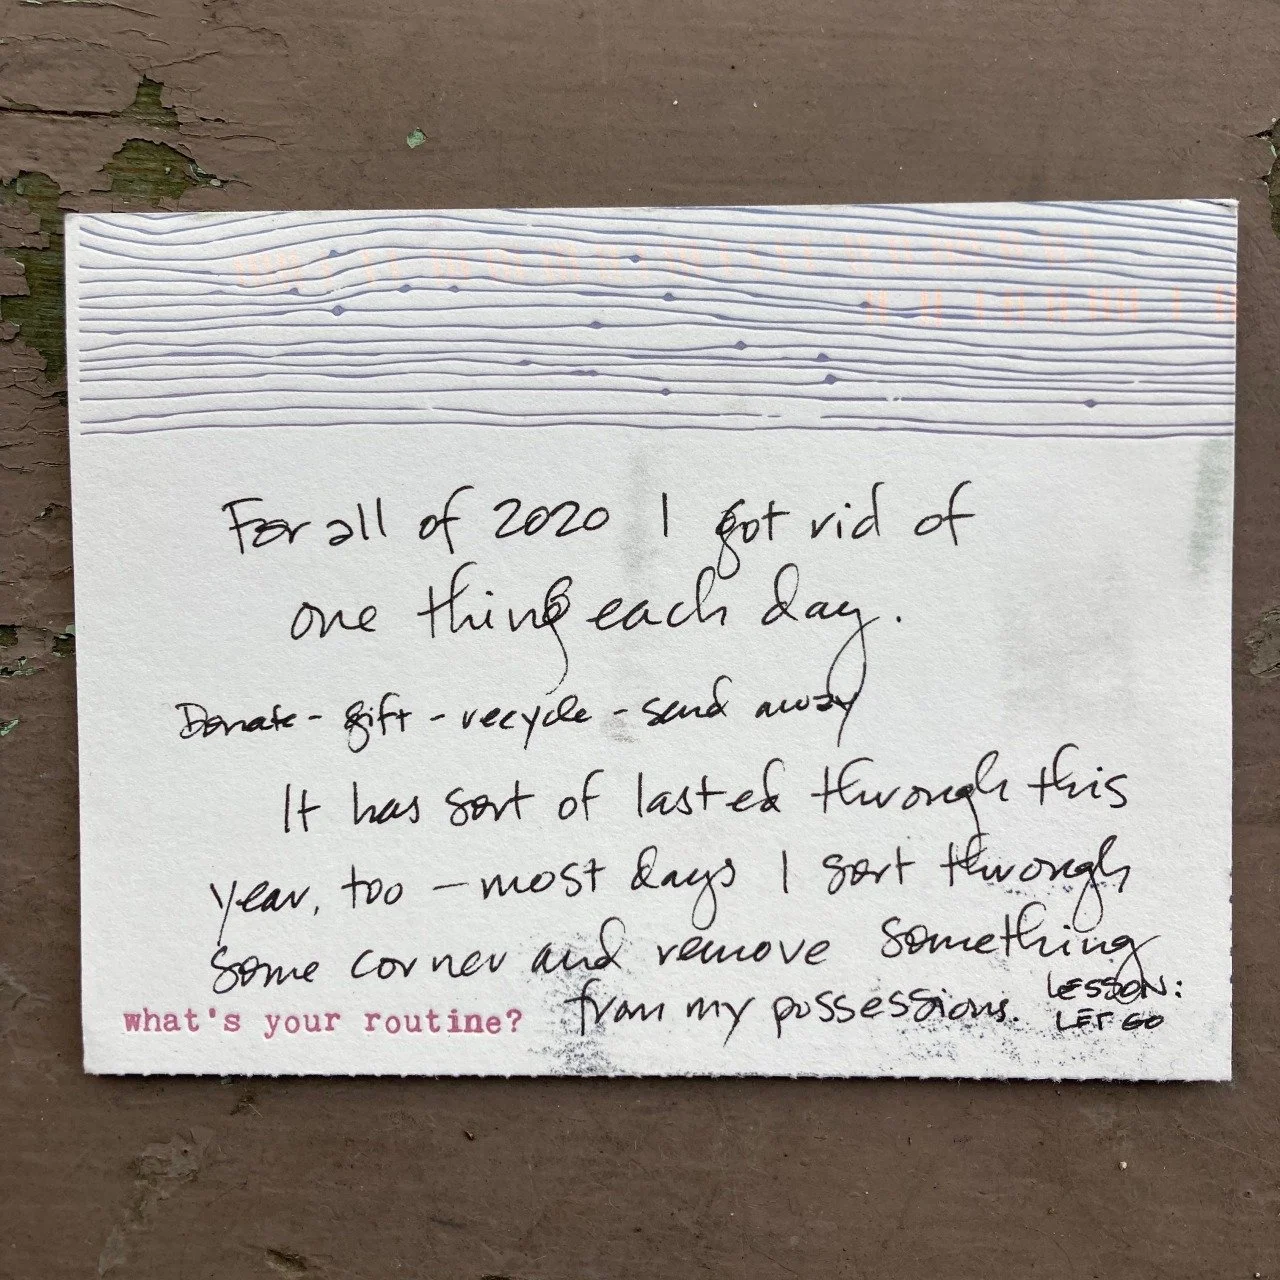 For all of 2020 I got rid of
one thing each day.
Donate - gift - recycle - send away
It has sort of lasted through this
year, too — most days I sort through
some corner and remove something
from my possessions.
LESSON:
LET GO
what's your routine?